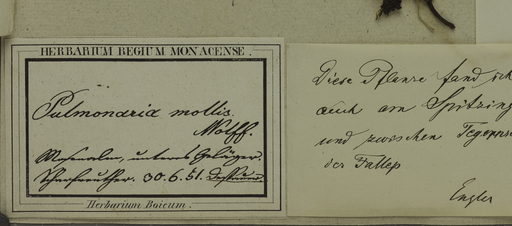 HERBARIUM REGIUM MONACENSE.
Pulmonaria mollis
Wolff.
unterer
30.6.51.
Herbarium Boicum.
Diese Pflanze fand ich
auch am Spitzing
und zwischen Tegernse
der Fallep
Engler